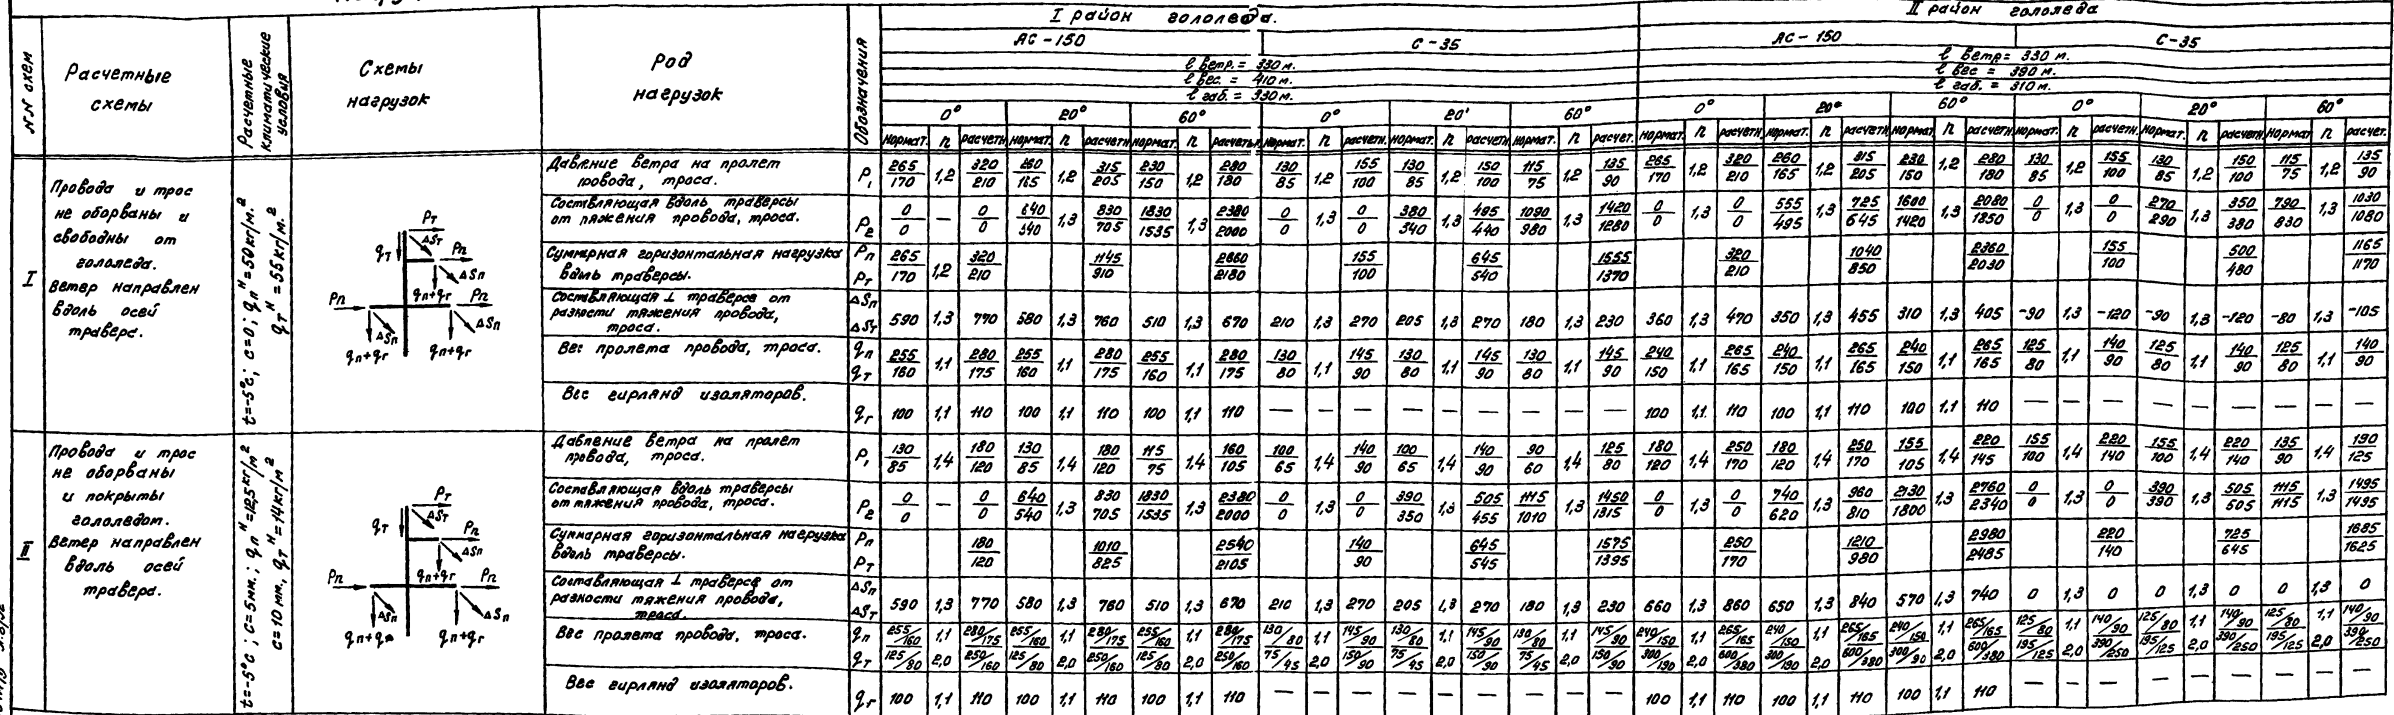 I район гололеда.
II район гололеда
NN схем
Расчетные схемы
Расчетные климатические условия
Схемы нагрузок
Род нагрузок
Обозначения
АС-150
С-35
АС-150
С-35
l ветр. = 330 м.
l вес. = 410 м.
l габ. = 330 м.
l ветр = 330 м.
l вес = 390 м.
l габ. = 310 м.
0° 20° 60° 0° 20' 60° 0° 20° 60° 0° 20° 60°
нормат. n расчетн. нормат. n расчетн. нормат. n расчетн. нормат. n расчетн. нормат. n расчетн. нормат. n расчет. нормат. n расчетн. нормат. n расчетн. нормат. n расчетн. нормат. n расчетн. нормат. n расчетн. нормат. n расчет.
I
Провода и трос
не оборваны и
свободны от
гололеда.
Ветер направлен
вдоль осей
траверс.
t=-5°c; c=0; qп^н=50кг/м.²
qт^н=55кг/м.²
Pт
ΔSт
qт
Pп
ΔSп
qп+qг
Pп
Pп
ΔSп
ΔSп
qп+qг
qп+qг
Давление ветра на пролет
провода, троса.
P₁ 265/170 1,2 320/210 260/165 1,2 315/205 230/150 1,2 280/180 130/85 1,2 155/100 130/85 1,2 150/100 115/75 1,2 135/90 265/170 1,2 320/210 260/165 1,2 315/205 230/150 1,2 280/180 130/85 1,2 155/100 130/85 1,2 150/100 115/75 1,2 135/90
Составляющая вдоль траверсы
от тяжения провода, троса.
P₂ 0/0 — 0/0 640/540 1,3 830/705 1830/1535 1,3 2380/2000 0/0 1,3 0/0 380/340 1,3 495/440 1090/980 1,3 1420/1280 0/0 1,3 0/0 555/495 1,3 725/645 1600/1420 1,3 2080/1850 0/0 1,3 0/0 270/290 1,3 350/380 790/830 1,3 1030/1080
Суммарная горизонтальная нагрузка
вдоль траверсы.
Pп Pт 265/170 1,2 320/210 1145/910 2660/2180 155/100 645/540 1555/1370 320/210 1040/850 2360/2030 155/100 500/480 1165/1170
Составляющая ⊥ траверсе от
разности тяжения провода,
троса.
ΔSп ΔSт 590 1,3 770 580 1,3 760 510 1,3 670 210 1,3 270 205 1,3 270 180 1,3 230 360 1,3 470 350 1,3 455 310 1,3 405 -90 1,3 -120 -90 1,3 -120 -80 1,3 -105
Вес пролета провода, троса.
qп qт 255/160 1,1 280/175 255/160 1,1 280/175 255/160 1,1 280/175 130/80 1,1 145/90 130/80 1,1 145/90 130/80 1,1 145/90 240/150 1,1 265/165 240/150 1,1 265/165 240/150 1,1 265/165 125/80 1,1 140/90 125/80 1,1 140/90 125/80 1,1 140/90
Вес гирлянд изоляторов.
qг 100 1,1 110 100 1,1 110 100 1,1 110 — — — — — — — — — 100 1,1. 110 100 1,1 110 100 1,1 110 — — — — — — — — —
II
Провода и трос
не оборваны
и покрыты
гололедом.
Ветер направлен
вдоль осей
траверс.
t=-5°c; c=5мм.; qп^н=12,5кг/м²
c=10 мм, qт^н=14кг/м²
Pт
ΔSт
qт
Pп
ΔSп
qп+qг
Pп
Pп
ΔSп
ΔSп
qп+qг
Давление ветра на пролет
провода, троса.
P₁ 130/85 1,4 180/120 130/85 1,4 180/120 115/75 1,4 160/105 100/65 1,4 140/90 100/65 1,4 140/90 90/60 1,4 125/80 180/120 1,4 250/170 180/120 1,4 250/170 155/105 1,4 220/145 155/100 1,4 220/140 155/100 1,4 220/140 135/90 1,4 190/125
Составляющая вдоль траверсы
от тяжения провода, троса.
P₂ 0/0 — 0/0 640/540 1,3 830/705 1830/1535 1,3 2380/2000 0/0 1,3 0/0 390/350 1,3 505/455 1115/1010 1,3 1450/1315 0/0 1,3 0/0 740/620 1,3 960/810 2130/1800 1,3 2760/2340 0/0 1,3 0/0 390/390 1,3 505/505 1115/1115 1,3 1495/1495
Суммарная горизонтальная нагрузка
вдоль траверсы.
Pп Pт 180/120 1010/825 2540/2105 140/90 645/545 1575/1395 250/170 1210/980 2980/2485 220/140 725/645 1685/1625
Составляющая ⊥ траверсе от
разности тяжения провода,
троса.
ΔSп ΔSт 590 1,3 770 580 1,3 760 510 1,3 670 210 1,3 270 205 1,3 270 180 1,3 230 660 1,3 860 650 1,3 840 570 1,3 740 0 1,3 0 0 1,3 0 0 1,3 0
Вес пролета провода, троса.
qп 255/160 1,1 280/175 255/160 1,1 280/175 255/160 1,1 280/175 130/80 1,1 145/90 130/80 1,1 145/90 130/80 1,1 145/90 240/150 1,1 265/165 240/150 1,1 265/165 240/150 1,1 265/165 125/80 1,1 140/90 125/80 1,1 140/90 125/80 1,1 140/90
qт 125/80 2,0 250/160 125/80 2,0 250/160 125/80 2,0 250/160 75/45 2,0 150/90 75/45 2,0 150/90 75/45 2,0 150/90 300/190 2,0 600/380 300/190 2,0 600/380 300/90 2,0 600/380 195/125 2,0 390/250 195/125 2,0 390/250 195/125 2,0 390/250
Вес гирлянд изоляторов.
qг 100 1,1 110 100 1,1 110 100 1,1 110 — — — — — — — — — 100 1,1 110 100 1,1 110 100 1,1 110 — — — — — — — — —